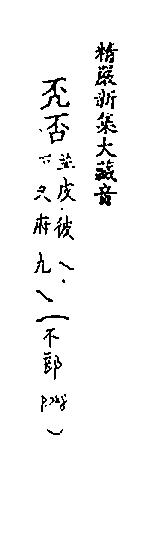 精嚴新集大藏音
否並皮彼
下又府九
(不部